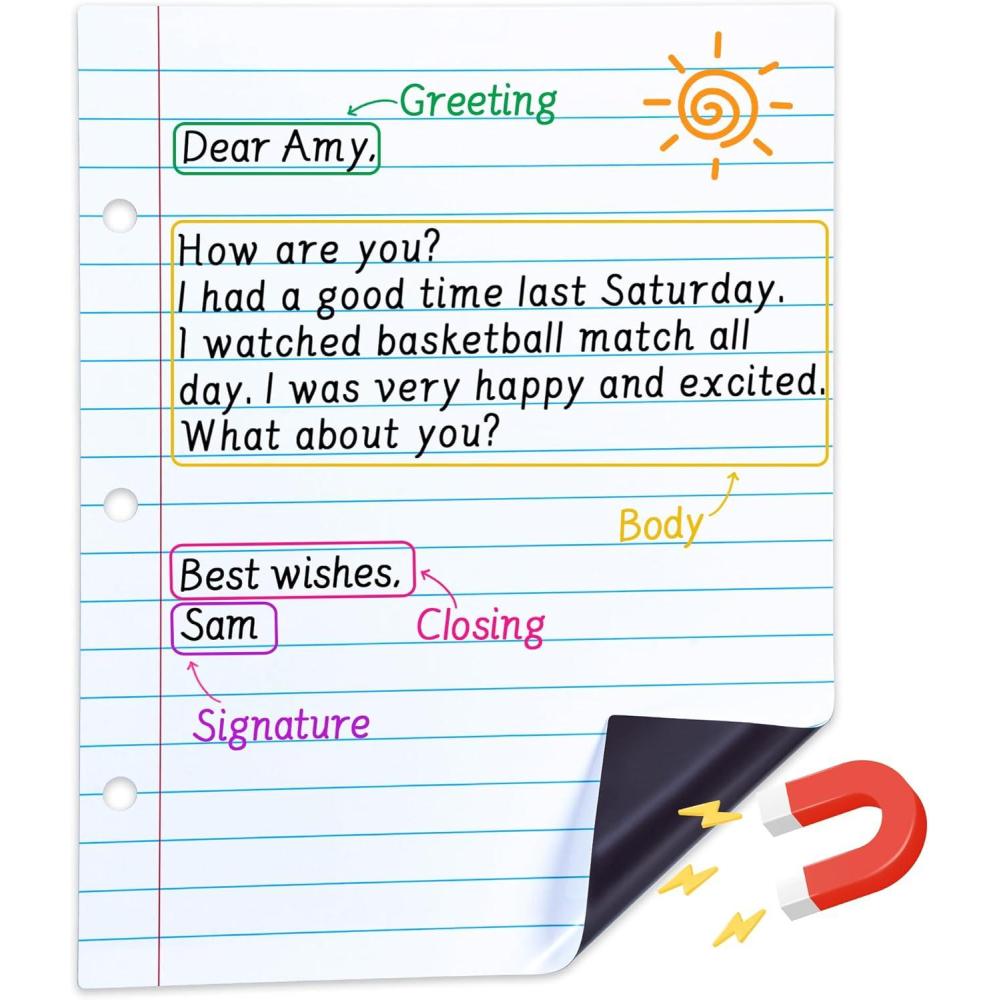 Greeting
Dear Amy,
How are you?
I had a good time last Saturday.
I watched basketball match all
day. I was very happy and excited.
What about you?
Body
Best wishes,
Closing
Sam
Signature